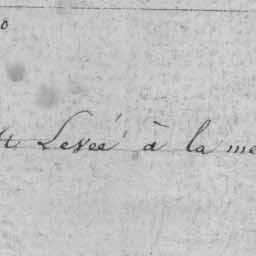 Levée à la me